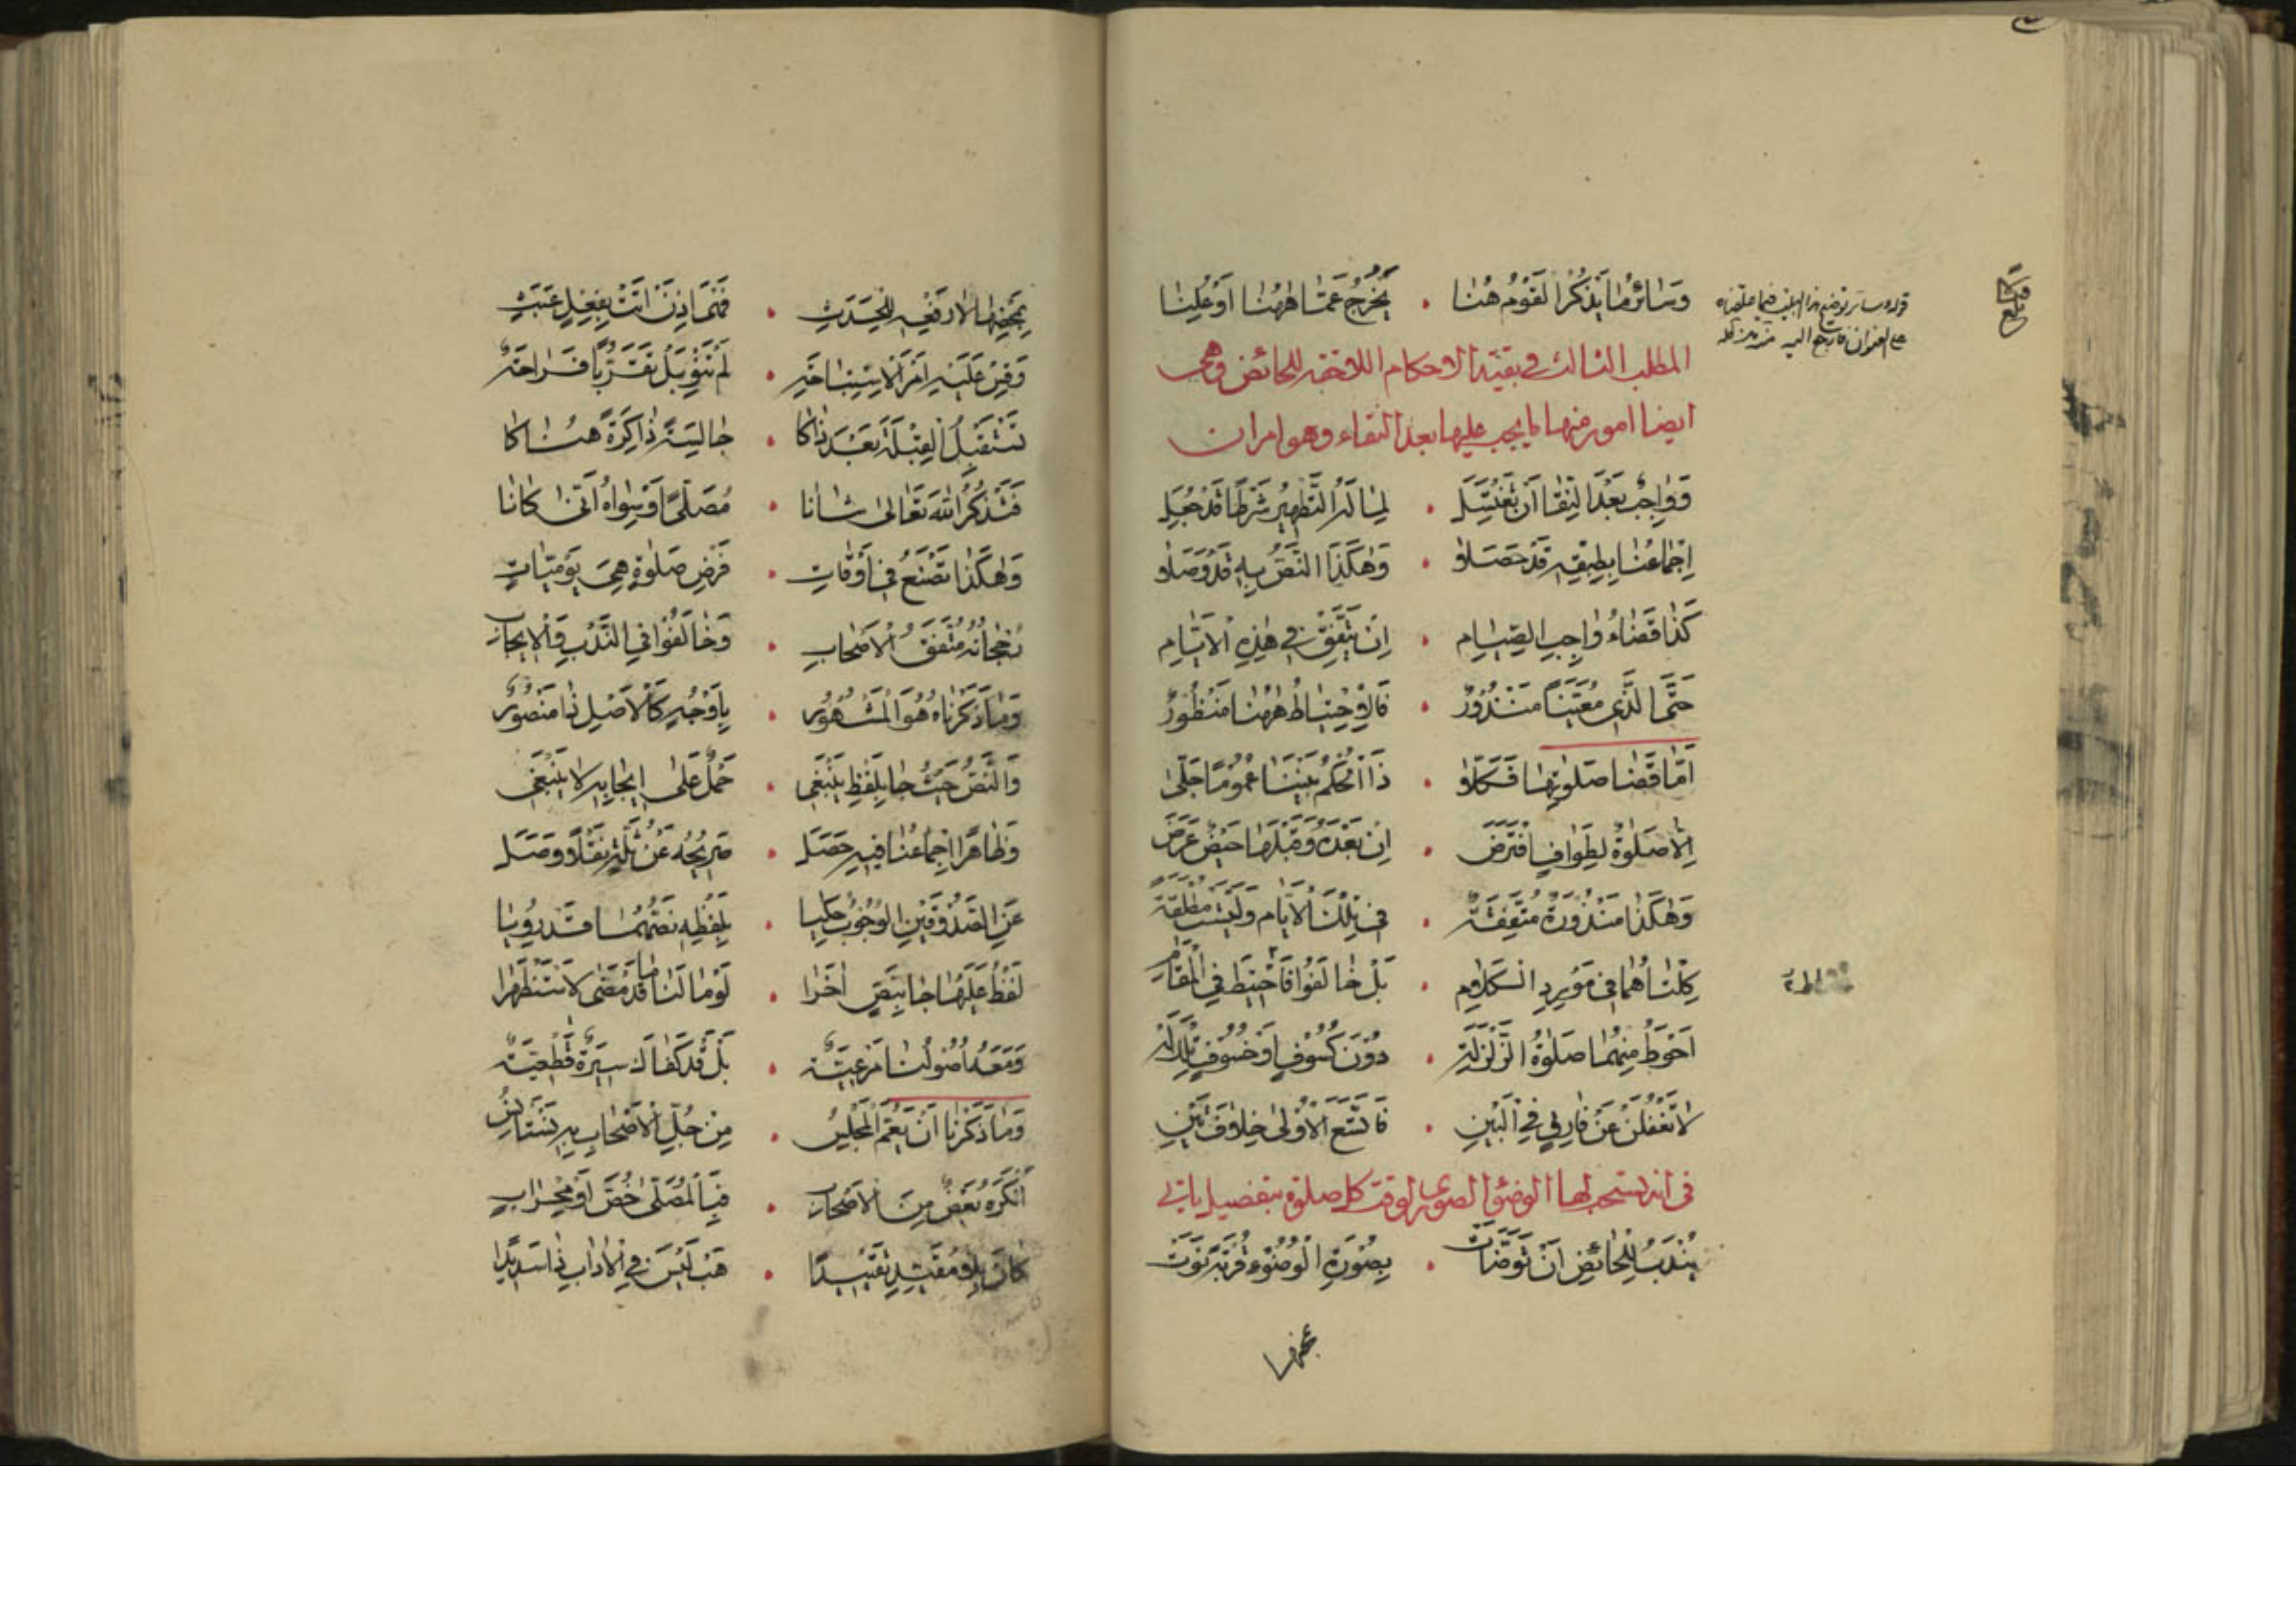 وَسَائِرُ مَا يَذْكُرُ الْقَوْمُ هُنَا • يَخْرُجُ عَمَّا هٰهُنَا اَوْ عُلِنَا
قوله وسائر توضيح هذا البيت فيما علقناه
على العنوان فارجع اليه منه مد ظله
المطلب الثالث في بقية الاحكام اللاحقة للحائض وهي
ايضا امور منها ما يجب عليها بعد النقاء وهو امران
وَوَاجِبٌ بَعْدَ النِّقَا اَنْ تَغْتَسِلَ • لِمَا لَهُ التَّطْهِيرُ شَرْطًا قَدْ جُعِلَ
اِجْمَاعُنَا بِطِبْقِهِ قَدْ حَصَلَا • وَهٰكَذَا النَّصُّ بِهِ قَدْ وَصَلَا
كَذَا قَضَاءُ وَاجِبِ الصِّيَامِ • اِنْ يَتَّفِقْ فِي هٰذِهِ الْاَيَّامِ
حَتَّى الَّذِي مُعَيَّنًا مَنْذُورٌ • فَالْاِحْتِيَاطُ هٰهُنَا مَنْظُورٌ
اَمَّا قَضَا صَلٰوتِهَا فَكَلَّا • ذَا الْحُكْمُ بَيْنَنَا عُمُومًا جَلّٰى
اِلَّا صَلٰوةٌ لِطَوَافٍ افْتَرَضَ • اِنْ بَعْدَهُ وَقَبْلَهَا حَيْضٌ عَرَضَ
وَهٰكَذَا مَنْذُورَةٌ مُتَّفِقَةٌ • فِي تِلْكَ الْاَيَّامِ وَلَيْسَتْ مُطْلَقَةً
كِلْتَاهُمَا فِي مَوْرِدِ الْكَلَامِ • بَلْ خَالَفُوا فَاحْتِطْ فِي الْمَقَامِ
اَحْوَطُ مِنْهُمَا صَلٰوةُ الزَّلْزَلَةِ • دُوْنَ كُسُوفٍ اَوْ خُسُوفٍ
لَا تَغْفُلَنْ عَنْ فَارِقٍ فِي الْبَيْنِ • فَاتَّسَعَ الْاُولٰى خِلَافَ تَيْنِ
في انه يستحب لها الوضوء الصوري لوقت كل صلوة بتفصيل ياتي
يُنْدَبُ لِلْحَائِضِ اَنْ تَوَضَّأَتْ • بِصُورَةِ الْوُضُوءِ قُرْبَةً نَوَتْ
لَمْ تَنْوِ بَلْ تَقَرُّبًا
تَسْتَقْبِلُ الْقِبْلَةَ بَعْدَ ذَاكَا • جَالِسَةً ذَاكِرَةً هُنَاكَا
فَتَذْكُرُ اللّٰهَ تَعَالٰى شَانَا • مُصَلًّى اَوْ سِوَاهُ اَنّٰى كَانَا
وَهٰكَذَا تَصْنَعُ فِي اَوْقَاتِ • فَرْضِ صَلٰوةٍ هِيَ يَوْمِيَّاتٍ
رُجْحَانُهُ مُتَّفَقُ الْاَصْحَابِ • وَخَالَفُوا فِي النَّدْبِ وَالْاِيجَابِ
وَمَا ذَكَرْنَاهُ هُوَ الْمَشْهُورُ • بِاَوْجُهٍ كَالْاَصْلِ ذَا مَنْصُورٌ
وَالنَّصُّ حَيْثُ جَا بِلَفْظِ يَنْبَغِي • حَمْلٌ عَلٰى اِيجَابِهِ لَا يَنْبَغِي
وَظَاهِرًا اِجْمَاعُنَا فِيهِ حَصَلَ • صَرِيحُهُ عَنْ ثُلَّةٍ نَقْلًا وَصَلَ
عَنِ الصَّدُوقَيْنِ الْوُجُوبُ حُكِيَا • بِلَفْظِهِ نَصُّهُمَا قَدْ رُوِيَا
لَفْظُ عَلَيْهَا جَا بِنَصٍّ اُخَرَا • لَوْ مَا لَنَا مَا قَدْ مَضٰى لَاسْتُظْهِرَا
وَمَعَهُ اُصُولُنَا مَرْعِيَّةٌ • بَلْ قَدْ كَفٰى لَكَ سِيرَةٌ قَطْعِيَّةٌ
وَمَا ذَكَرْنَا اَنْ يَعُمَّ الْمَجْلِسُ • مِنْ جُلِّ الْاَصْحَابِ بِهِ يُسْتَأْنَسُ
اَنْكَرَهُ بَعْضٌ مِنَ الْاَصْحَابِ • فَبِالْمُصَلّٰى خُصَّ اَوْ مِحْرَابٍ
كَانَ بِلَا مُقَيِّدٍ تَقْيِيدًا • هَبْ لَيْسَ فِي الْاٰدَابِ ذَا سَدِيدًا